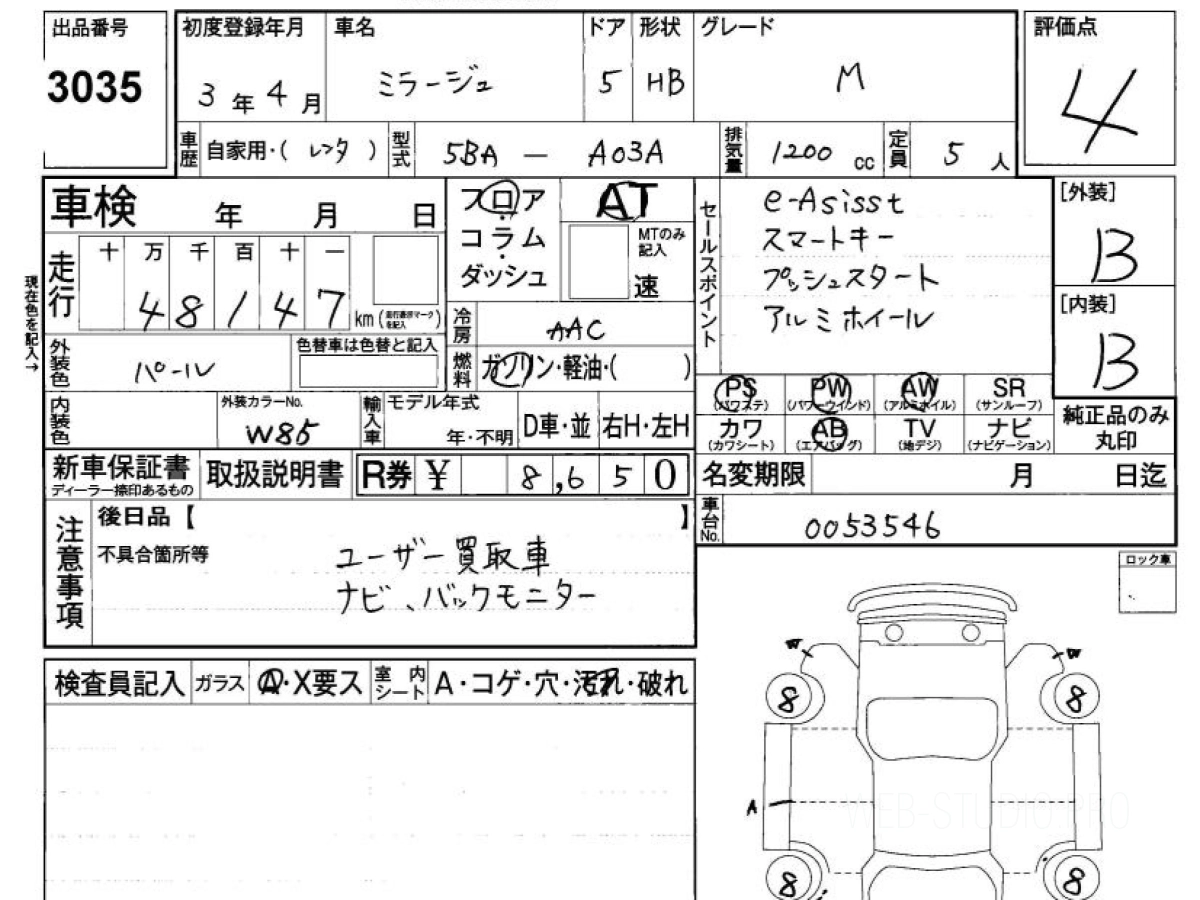 出品番号
3035
初度登録年月
3年4月
車名
ミラージュ
ドア
5
形状
HB
グレード
M
評価点
4
車歴 自家用・( レンタ )
型式 5BA — A03A
排気量 1200 cc
定員 5 人
車検 年 月 日
フロア
コラム
ダッシュ
AT
MTのみ
記入
速
セールスポイント
e-Asisst
スマートキー
プッシュスタート
アルミホイール
[外装]
B
[内装]
B
現在色を記入→
走行
十 万 千 百 十 一
4 8 1 4 7
km (走行表示マークを記入)
冷房 AAC
燃料 ガソリン・軽油・( )
外装色 パール
色替車は色替と記入
内装色
外装カラーNo.
W85
輸入車
モデル年式
年・不明
D車・並
右H・左H
PS PW AW SR
(パワステ) (パワーウインド) (アルミホイル) (サンルーフ)
カワ AB TV ナビ
(カワシート) (エアバッグ) (地デジ) (ナビゲーション)
純正品のみ
丸印
新車保証書
ディーラー捺印あるもの
取扱説明書
R券 ¥ 8,650
名変期限 月 日迄
車台No. 0053546
注意事項
後日品【 】
不具合箇所等
ユーザー買取車
ナビ、バックモニター
ロック車
検査員記入
ガラス
A・X要ス
室内シート
A・コゲ・穴・汚れ・破れ
W W
8 8
A
8 8
WEB-STUDIO.PRO